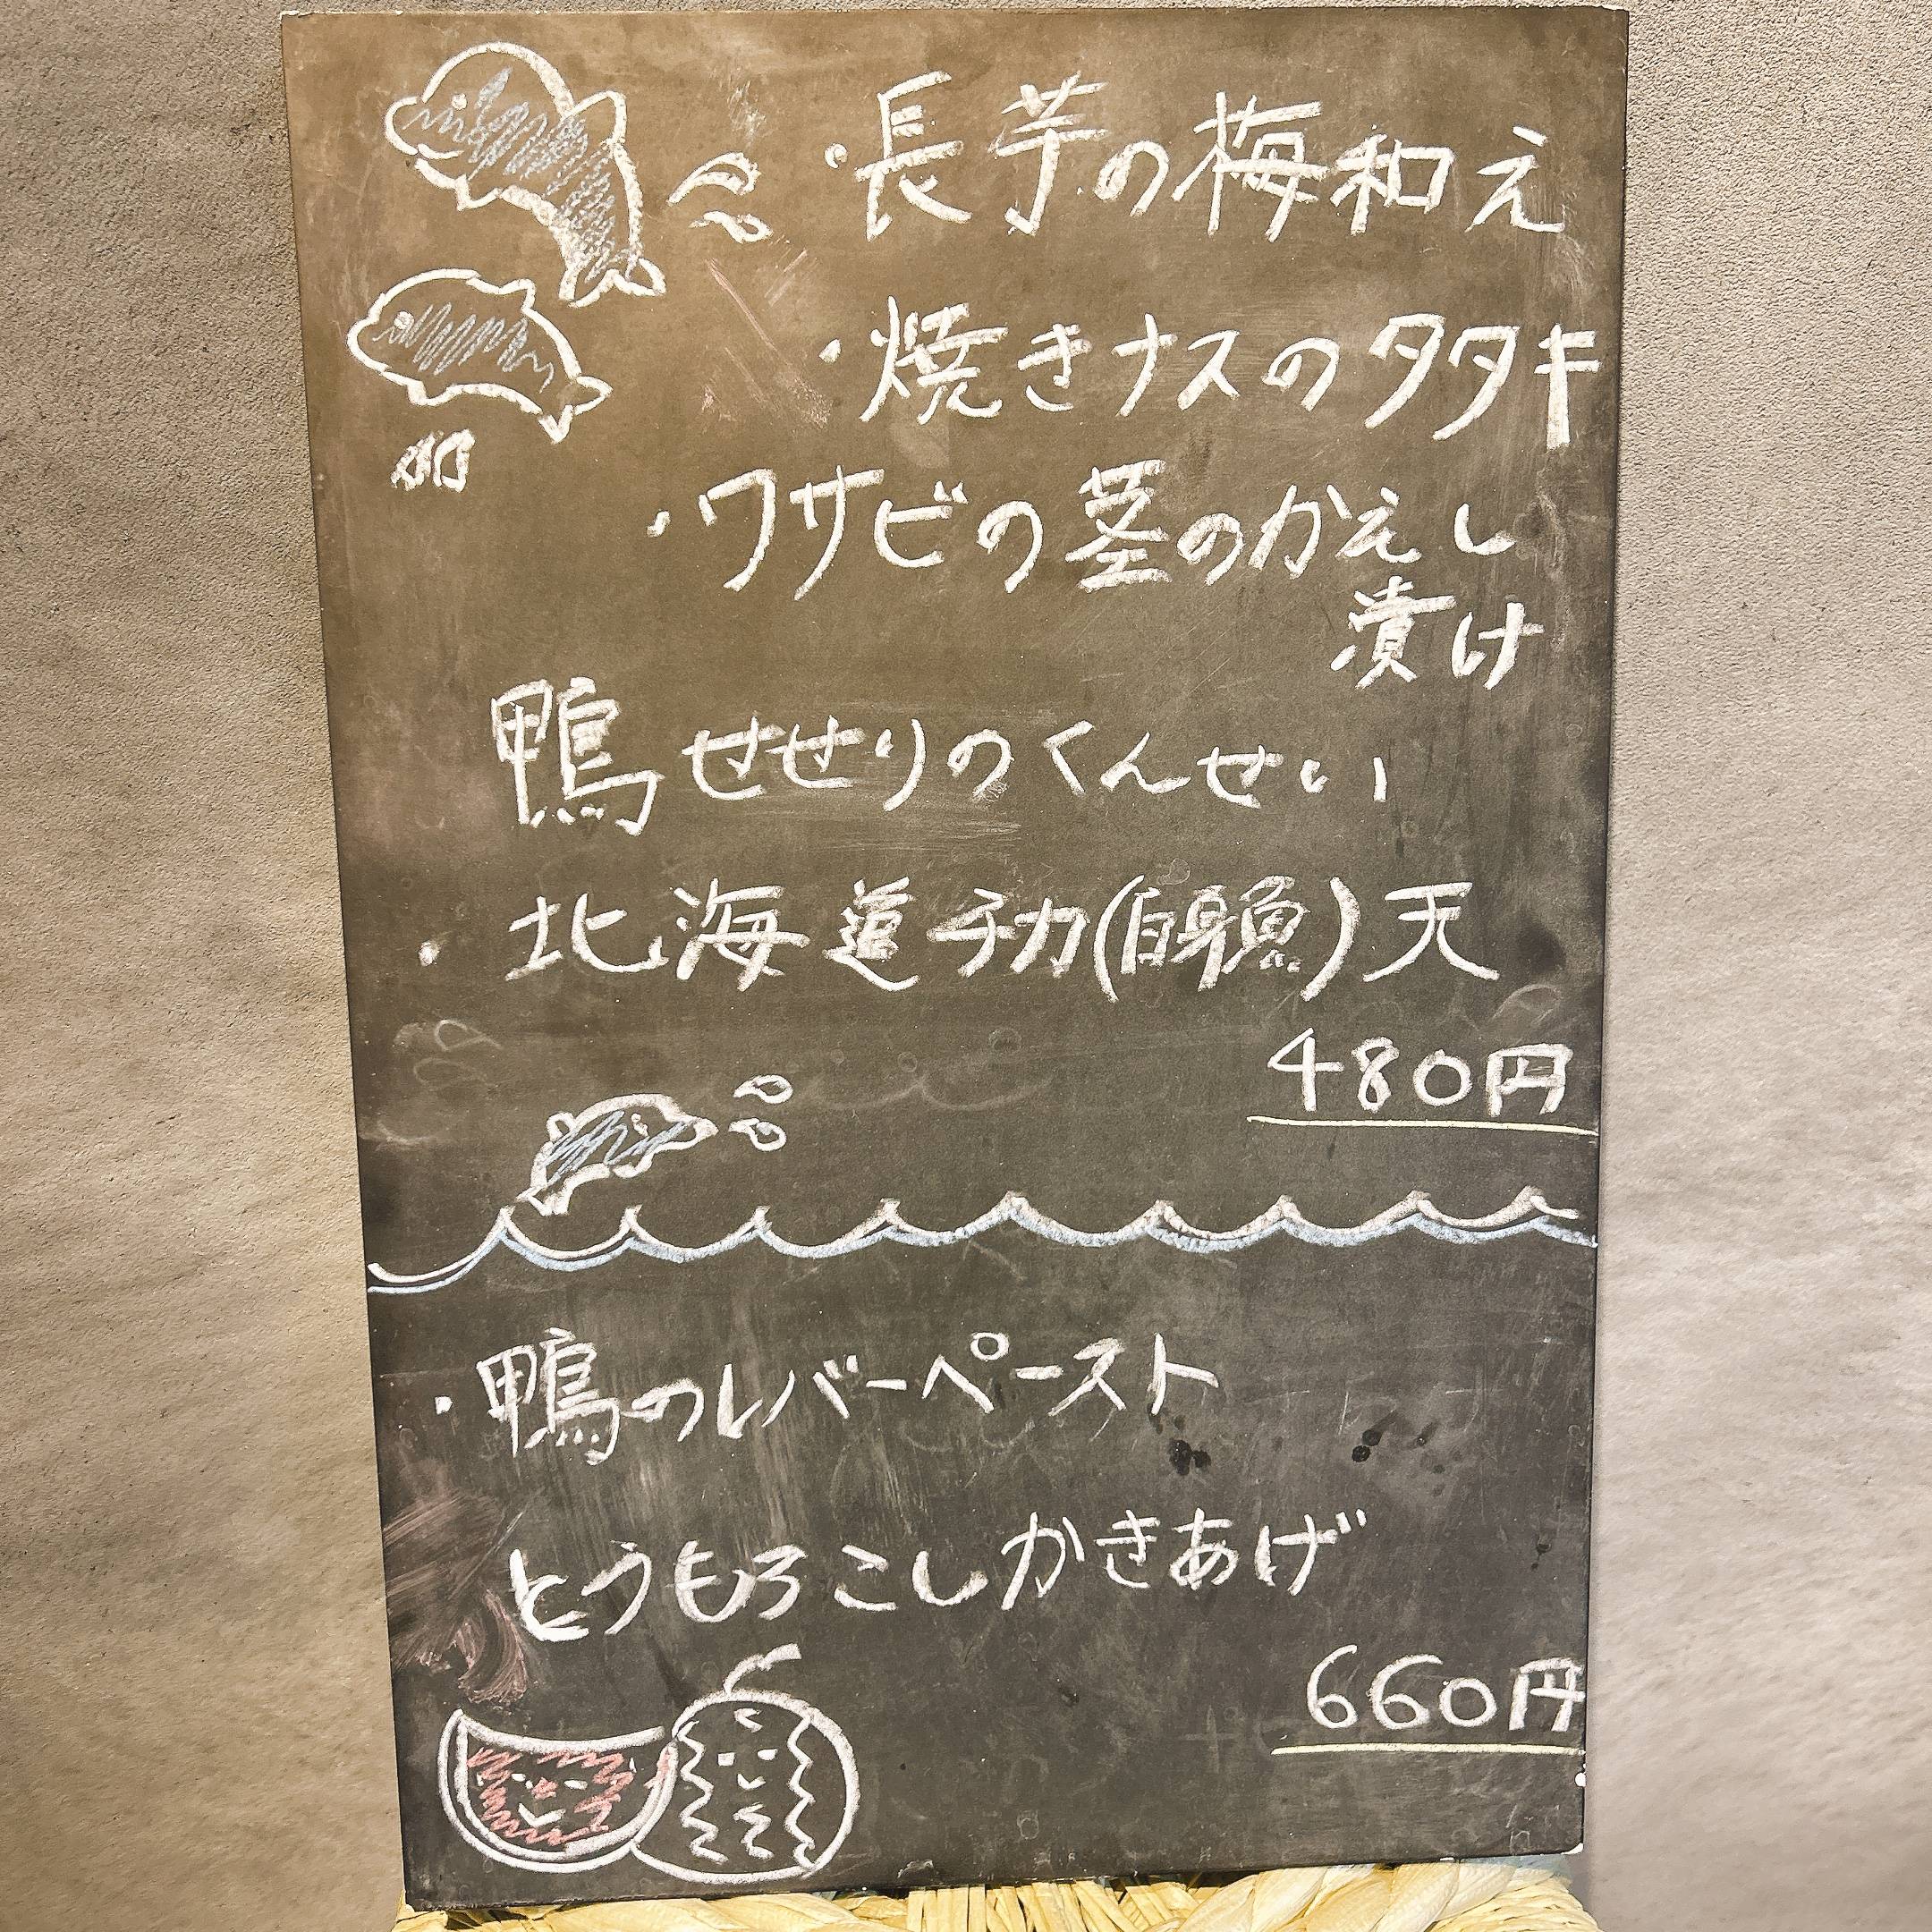 ・長芋の梅和え
・焼きナスのタタキ
・ワサビの茎のかえし
漬け
鴨せせりのくんせい
・北海道チカ(白身魚)天
480円
・鴨のレバーペースト
とうもろこしかきあげ
660円